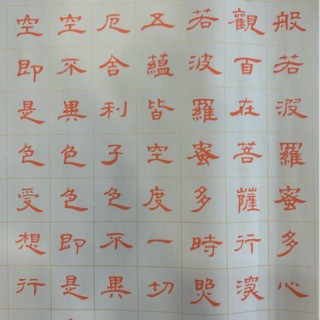 般若波羅蜜多心
觀自在菩薩行深
若波羅蜜多時照
五蘊皆空度一切
厄舍利子色不異
空不異色色即是
空即是色受想行